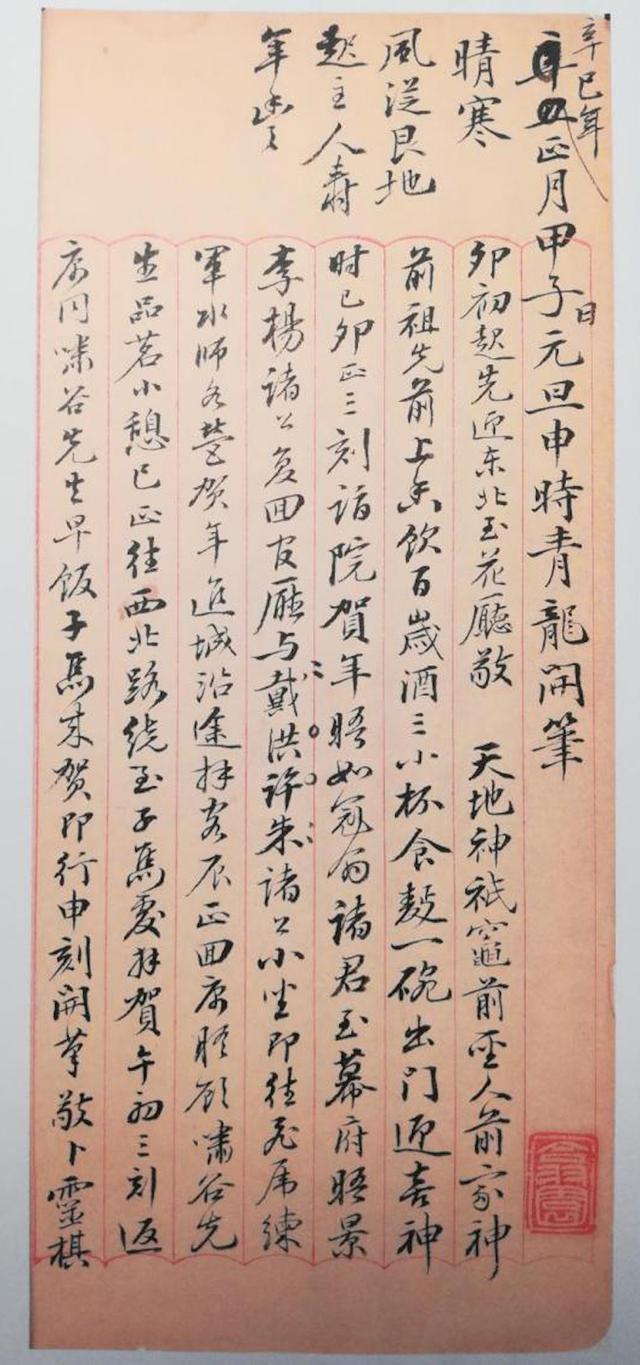 辛巳年
正月甲子日元旦申時青龍開筆
晴寒
風從艮地
起主人壽
年豐
卯初起先迎东北至花廳敬 天地神祇竈前聖人前家神
前祖先前上香飲百歲酒三小杯食麪一碗出门迎喜神
时已卯正三刻詣院賀年晤如冠翁諸君至幕府晤景
李楊諸公复回官廳与戴洪許朱諸公小坐即往飛席練
軍水師各營贺年進城沿途拜客辰正回寓晤顧嘯谷先
生品茗小憩巳正往西北路绕至子馬處拜賀午初三刻返
寓同嘯谷先生早饭子馬来贺即行申刻開筆敬卜靈棋